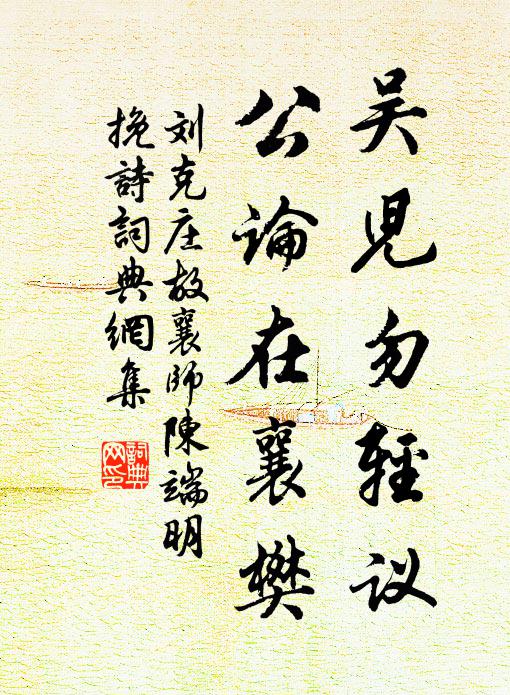 吴児勿轻议
公论在襄樊
刘克庄故襄師陳端明
挽詩詞典網集
詞典网印